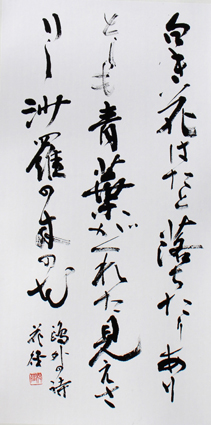 白き花はたと落ちたりあり
としも青葉がくれに見えさ
りし沙羅の木の花
鴎外の詩